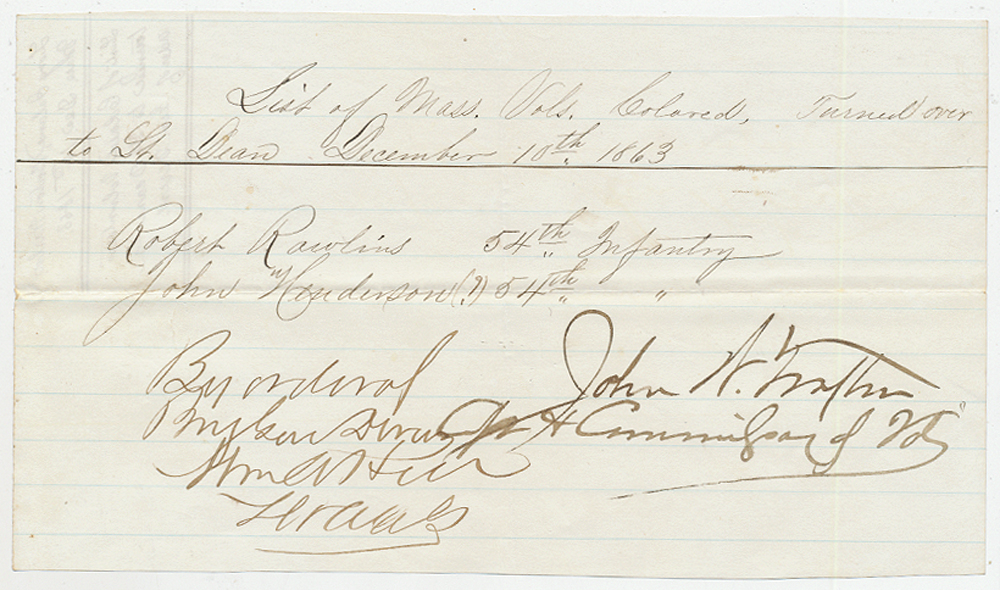 List of Mass. Vols. Colored, Turned over
to Lt. Dean December 10th 1863
Robert Rawlins 54th Infantry
John Henderson (?) 54th " "
By order of John W.
Brig Gen Devens & Commissary of
Wm A Hill